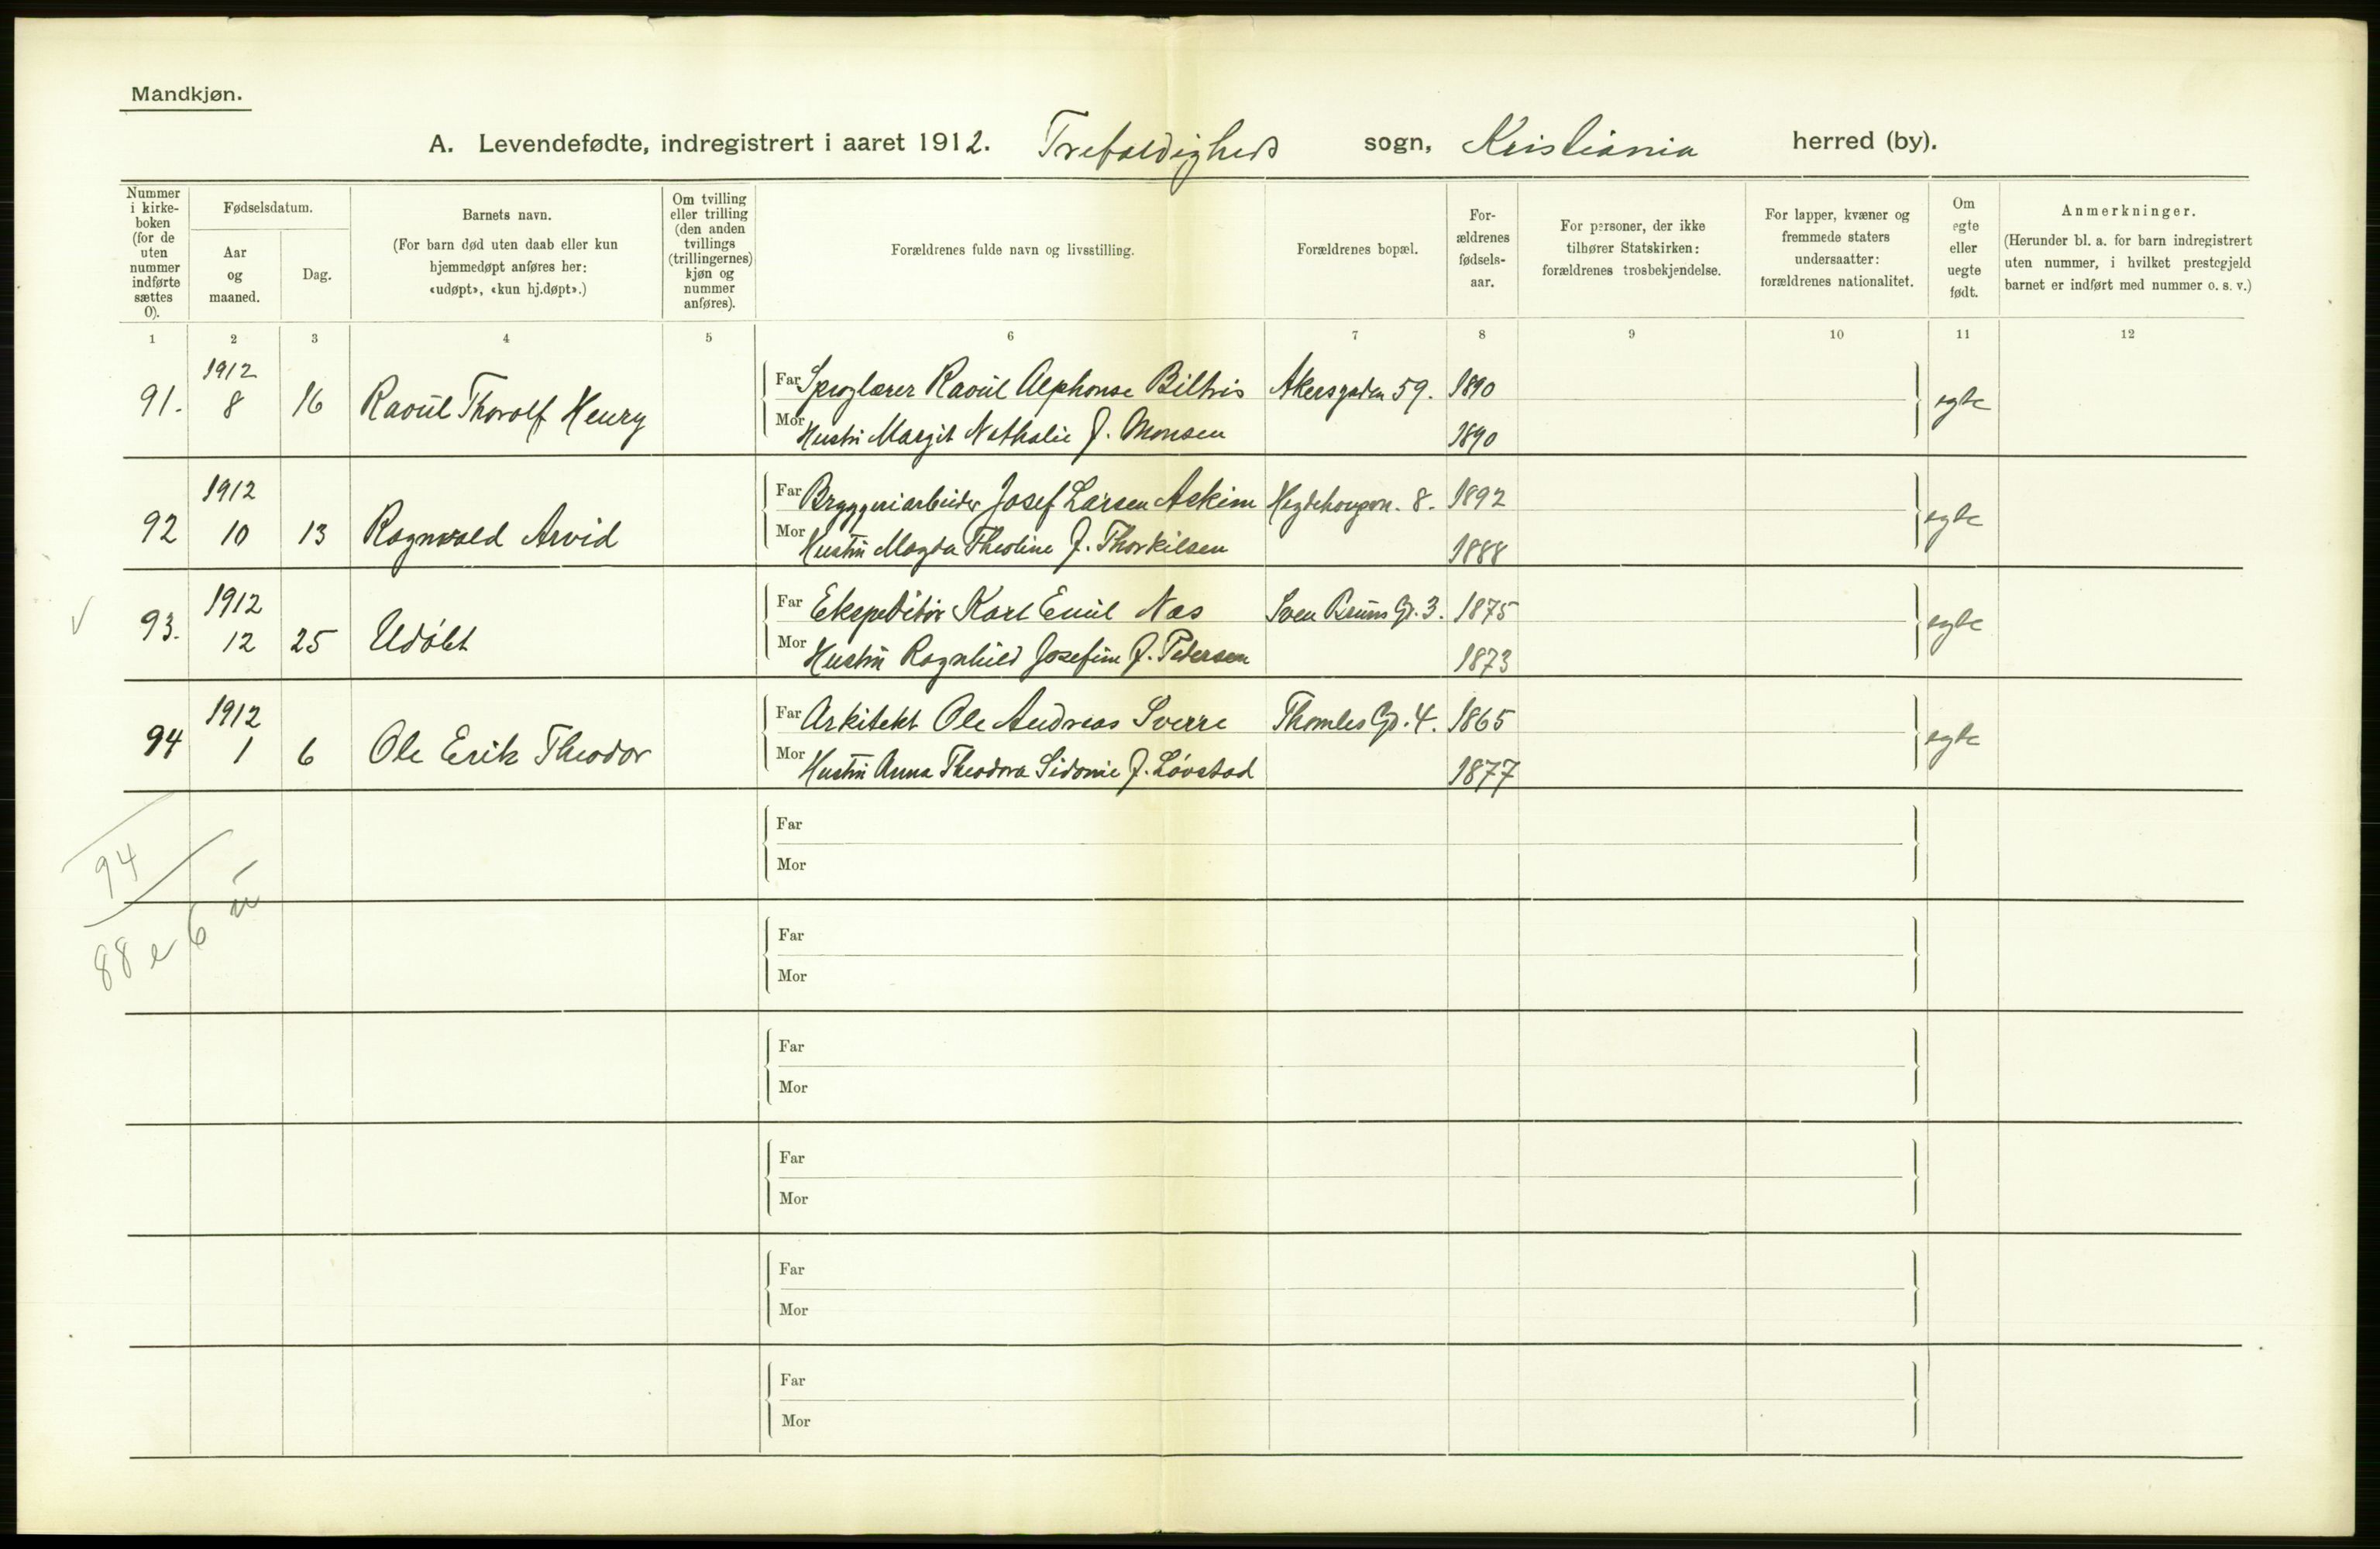 Mandkjøn.
A. Levendefødte, indregistrert i aaret 1912. Trefoldigheds sogn, Kristiania herred (by).
Nummer i kirke-boken (for de uten nummer indførte sættes 0).
Fødselsdatum.
Aar og maaned.
Dag.
Barnets navn.
(For barn død uten daab eller kun hjemmedøpt anføres her: «udøpt», «kun hj.døpt».)
Om tvilling eller trilling (den anden tvillings (trillingernes) kjøn og nummer anføres).
Forældrenes fulde navn og livsstilling.
Forældrenes bopæl.
For-ældrenes fødsels-aar.
For personer, der ikke tilhører Statskirken: forældrenes trosbekjendelse.
For lapper, kvæner og fremmede staters undersaatter: forældrenes nationalitet.
Om egte eller uegte født.
Anmerkninger.
(Herunder bl. a. for barn indregistrert uten nummer, i hvilket prestegjeld barnet er indført med nummer o. s. v.)
1 2 3 4 5 6 7 8 9 10 11 12
91. 1912 8 16 Raoul Thorolf Henry
Far Sproglærer Raoul Alphonse Biltris Akersgaden 59. 1890
Mor Hustru Margit Nathalie f. Monsen 1890
egte
92 1912 10 13 Ragnvald Arvid
Far Bryggeriarbeider Josef Larsen Askim Hegdehougsv. 8. 1892
Mor Hustru Magda Theoline f. Thorkilsen 1888
egte
93. 1912 12 25 Udøbt
Far Ekspeditør Karl Emil Næs Sven Bruns Gd. 3. 1875
Mor Hustru Ragnhild Josefine f. Pedersen 1873
egte
94 1912 1 6 Ole Erik Theodor
Far Arkitekt Ole Andreas Sverre Thomles Gd. 4. 1865
Mor Hustru Anna Theodora Sidonie f. Løvstad 1877
egte
94
88 e 6 u
Far
Mor
Far
Mor
Far
Mor
Far
Mor
Far
Mor
Far
Mor